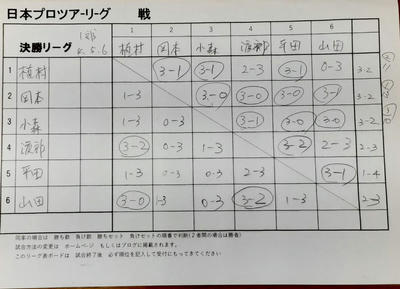 日本プロツアーリーグ 戦
1 2 3 4 5 6
決勝リーグ 植村 岡本 小森 渡部 平田 山田
1 植村 3-1 3-1 2-3 3-1 0-3 3-2
2 岡本 1-3 3-0 3-0 3-0 3-1
3 小森 1-3 0-3 3-1 3-0 3-0 3-2
4 渡部 3-2 0-3 1-3 3-2 2-3 2-3
5 平田 1-3 0-3 0-3 2-3 3-1 1-4
6 山田 3-0 1-3 0-3 3-2 1-3 2-3
同率の場合は 勝ち数 負け数 勝ちセット 負けセットの順番で判断(2者間の場合は勝者)
試合方法の変更は ホームページ もしくはブログに掲載されます。
このリーグ表ボードは 試合終了後 必ず順位を記入して受付にもってきてください